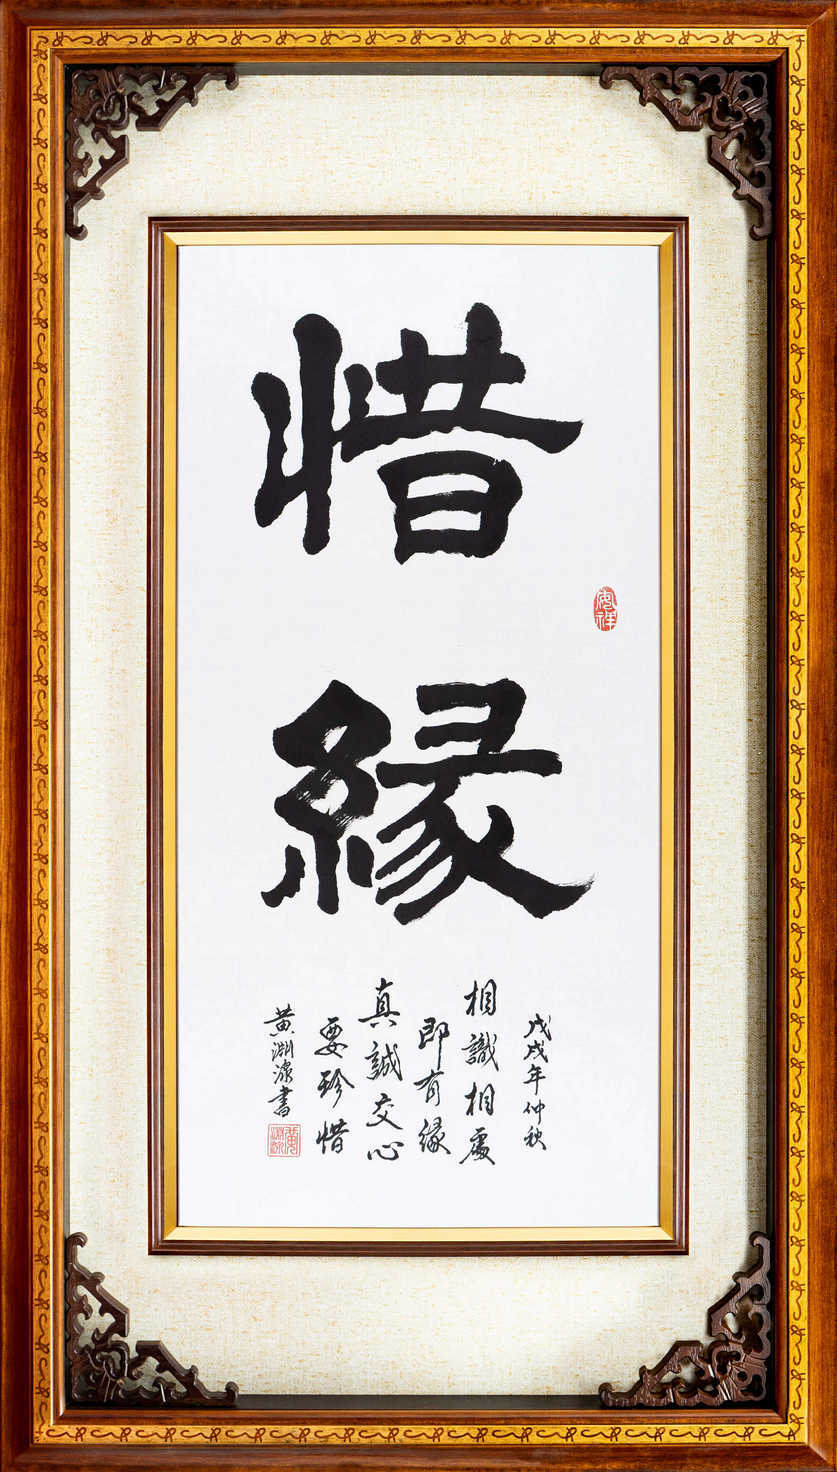 惜
縁
戊戌年仲秋
相識相處
即有縁
真誠交心
要珍惜
黄淵書